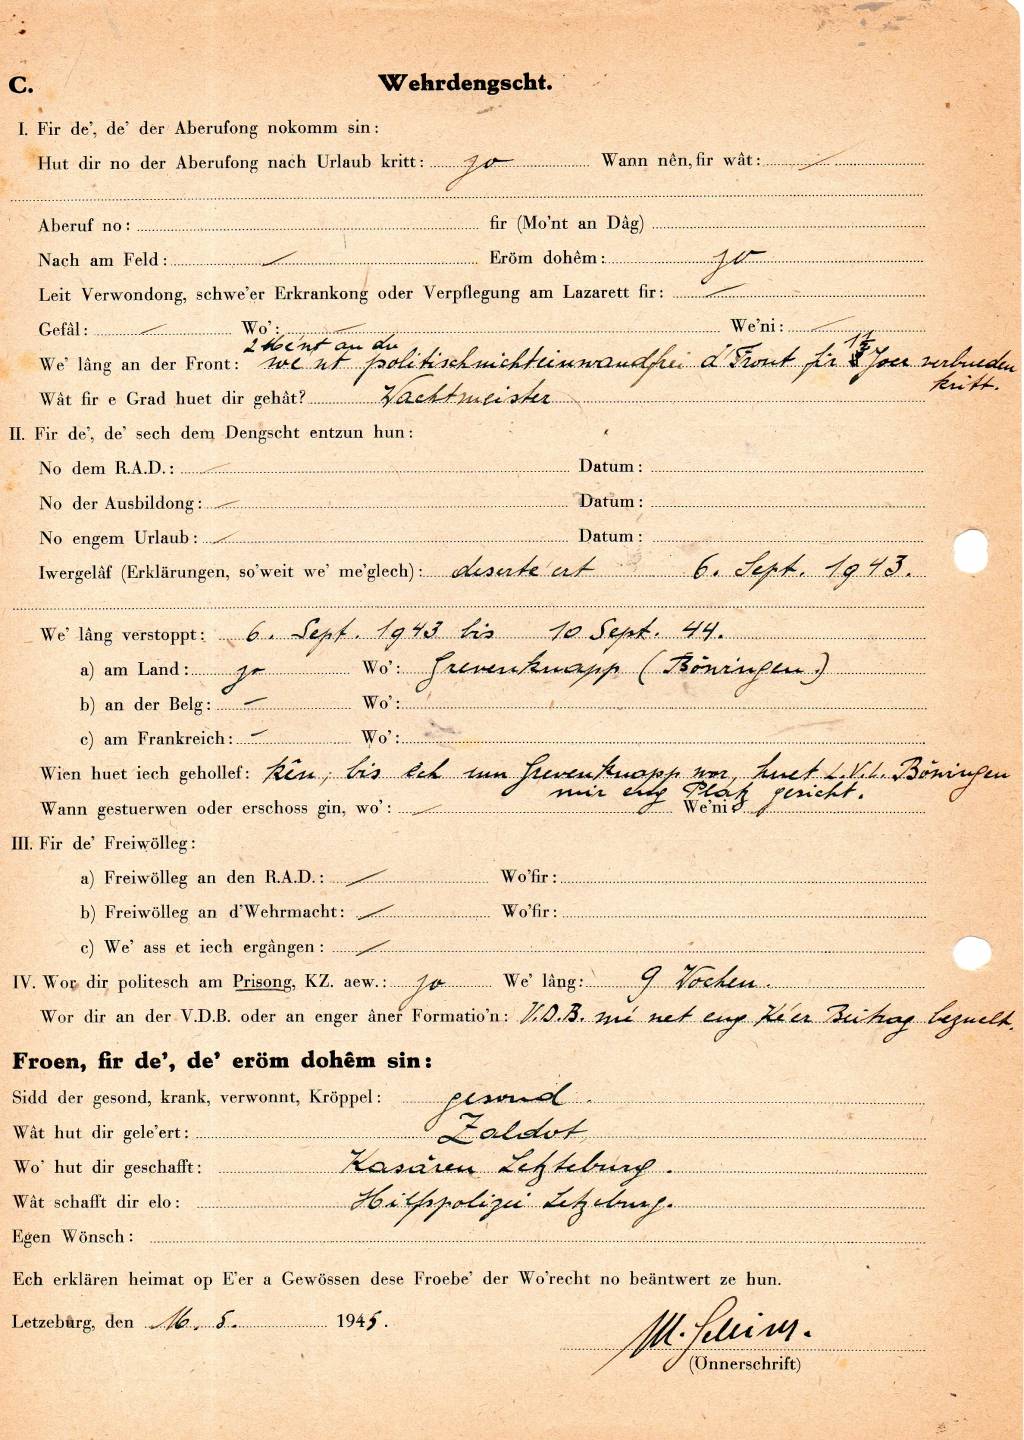 C. Wehrdengscht.
I. Fir de', de' der Aberufong nokomm sin:
Hut dir no der Aberufong nach Urlaub kritt: jo Wann nên, fir wât: /
Aberuf no: fir (Mo'nt an Dâg)
Nach am Feld: / Eröm dohêm: jo
Leit Verwondong, schwe'er Erkrankong oder Verpflegung am Lazarett fir: /
Gefâl: / Wo': / We'ni: /
2 Mo'nt an du 1½
We' lâng an der Front: we nt politischnichteinwandfrei d'Front fir Joer verbueden
kritt.
Wât fir e Grad huet dir gehât? Wachtmeister
II. Fir de', de' sech dem Dengscht entzun hun:
No dem R.A.D.: / Datum:
No der Ausbildong: / Datum:
No engem Urlaub: / Datum:
Iwergelâf (Erklärungen, so'weit we' me'glech): deserte'ert 6. Sept. 1943.
We' lâng verstoppt: 6. Sept. 1943 bis 10 Sept. 44.
a) am Land: jo Wo': Grevenknapp (Böwingen.)
b) an der Belg: – Wo':
c) am Frankreich: – Wo':
Wien huet iech gehollef: kên, bis ech um Grevenknapp wor, huet L.V.L. Böwingen
mir eng Platz gesicht.
Wann gestuerwen oder erschoss gin, wo': / We'ni
III. Fir de' Freiwölleg:
a) Freiwölleg an den R.A.D.: / Wo'fir:
b) Freiwölleg an d'Wehrmacht: / Wo'fir:
c) We' ass et iech ergângen: /
IV. Wor dir politesch am Prisong, KZ. aew.: jo We' lâng: 9 Wochen.
Wor dir an der V.D.B. oder an enger âner Formatio'n: V.D.B. me' net eng Ke'er Beitrag bezuelt.
Froen, fir de', de' eröm dohêm sin:
Sidd der gesond, krank, verwonnt, Kröppel: gesond.
Wât hut dir gele'ert: Zaldot
Wo' hut dir geschafft: Kasären Letzteburg.
Wât schafft dir elo: Hilfspolizei Letzeburg.
Egen Wönsch:
Ech erklären heimat op E'er a Gewössen dese Froebe' der Wo'recht no beäntwert ze hun.
Letzeburg, den 16. 5. 1945.
M.
(Önnerschrift)